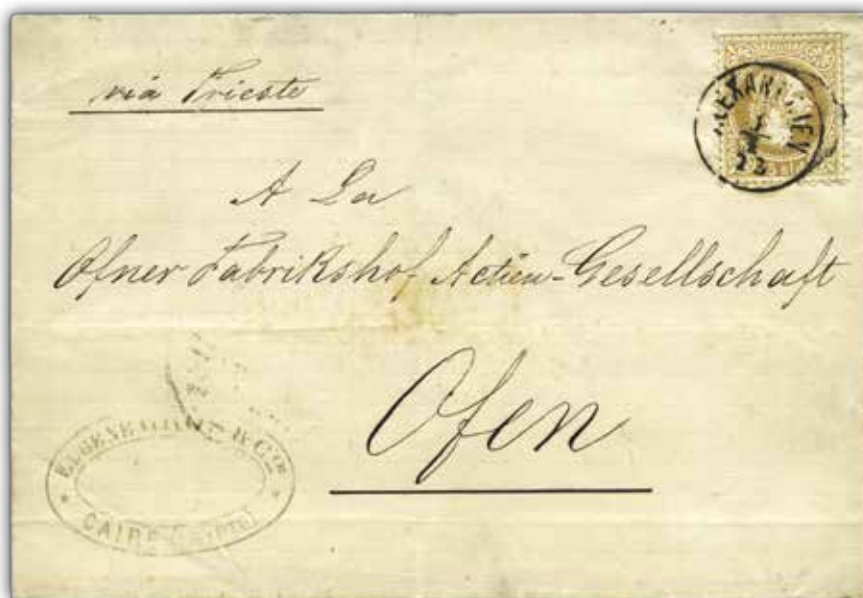 via Trieste
ALEXANDRIEN
73
A La
Ofner Fabrikshof Actien-Gesellschaft
Ofen
EUGENE & Cie
CAIRE (EGYPTE)